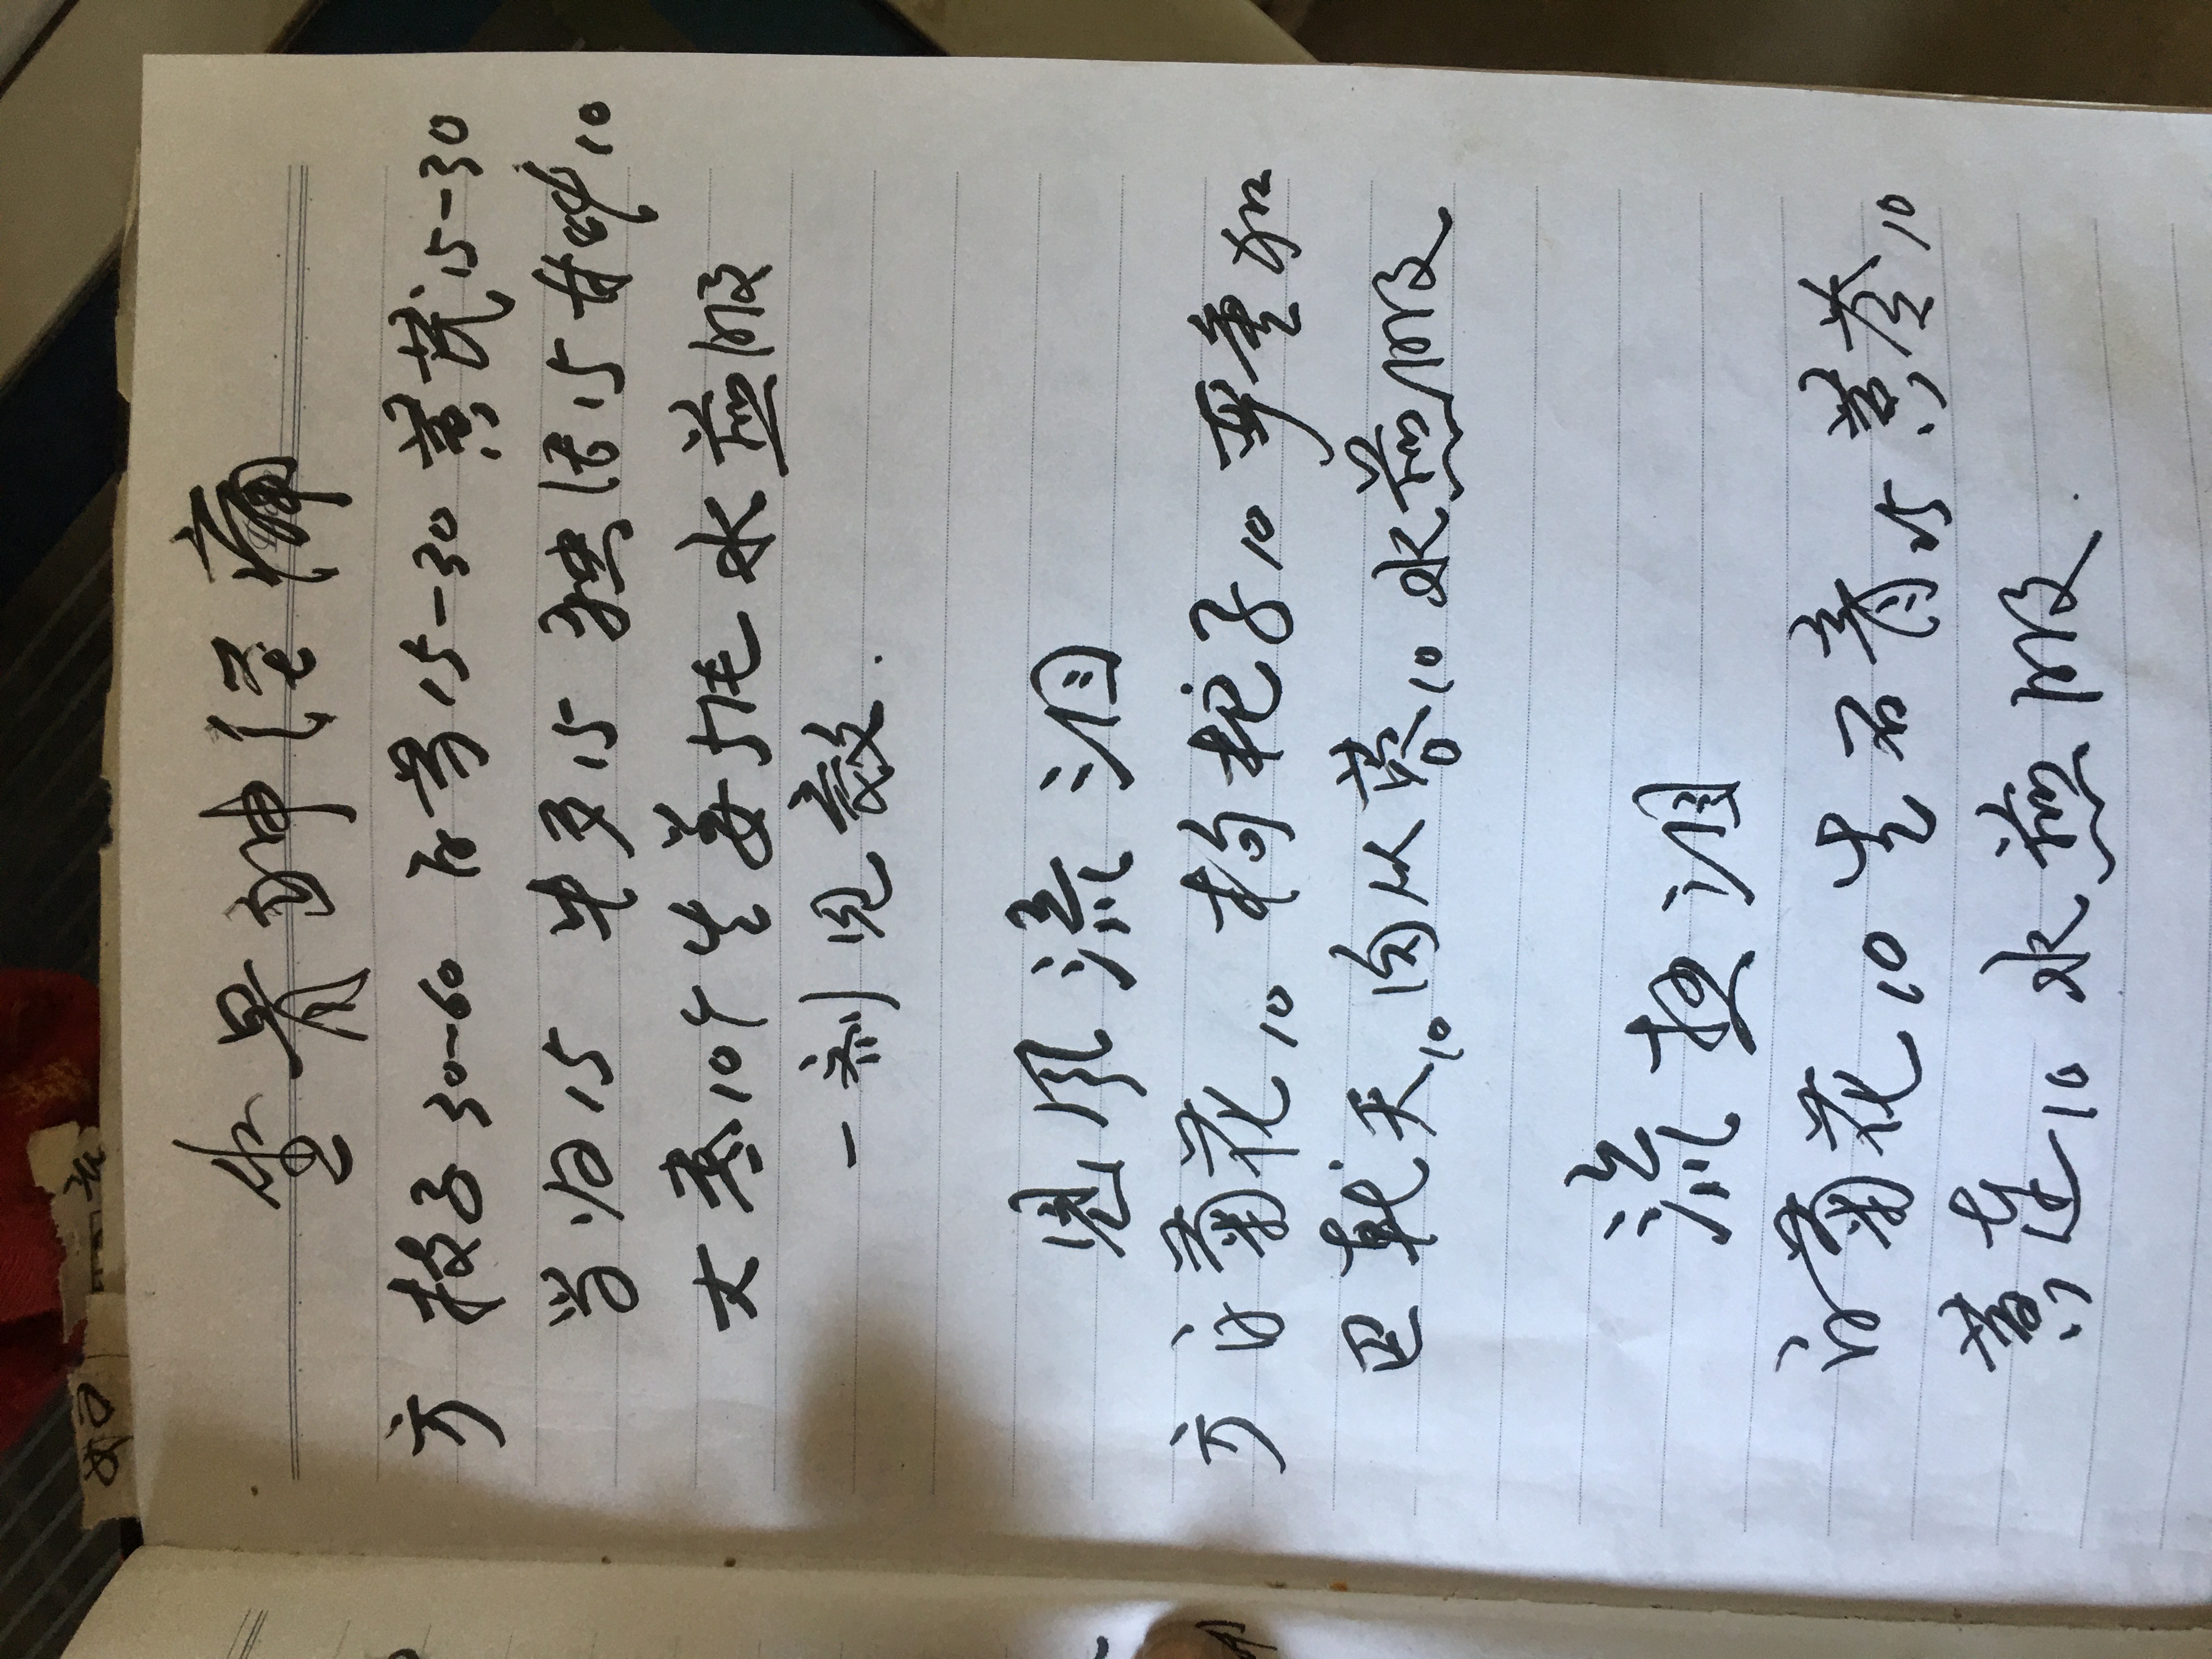 坐骨神经痛
方 枝子30-60 白芍15-30 黄芪15-30
当归15 牛夕15 独活15 甘草10
大枣10个 生姜5片 水煎服
一剂见效.
迎风流泪
方 白菊花10 枸杞子10 严重加
巴戟天10 肉苁蓉10 水煎服
流热泪
白菊花10 生石膏15 黄芩10
黄连10 水煎服.